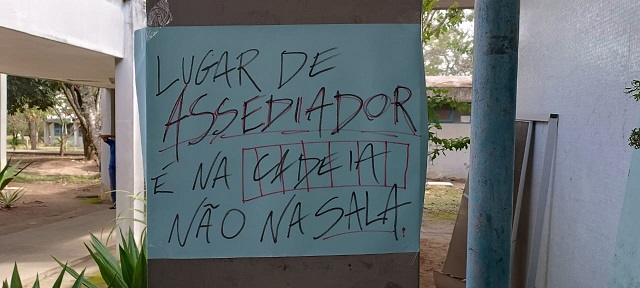 LUGAR DE
ASSEDIADOR
É NA CADEIA
NÃO NA SALA.